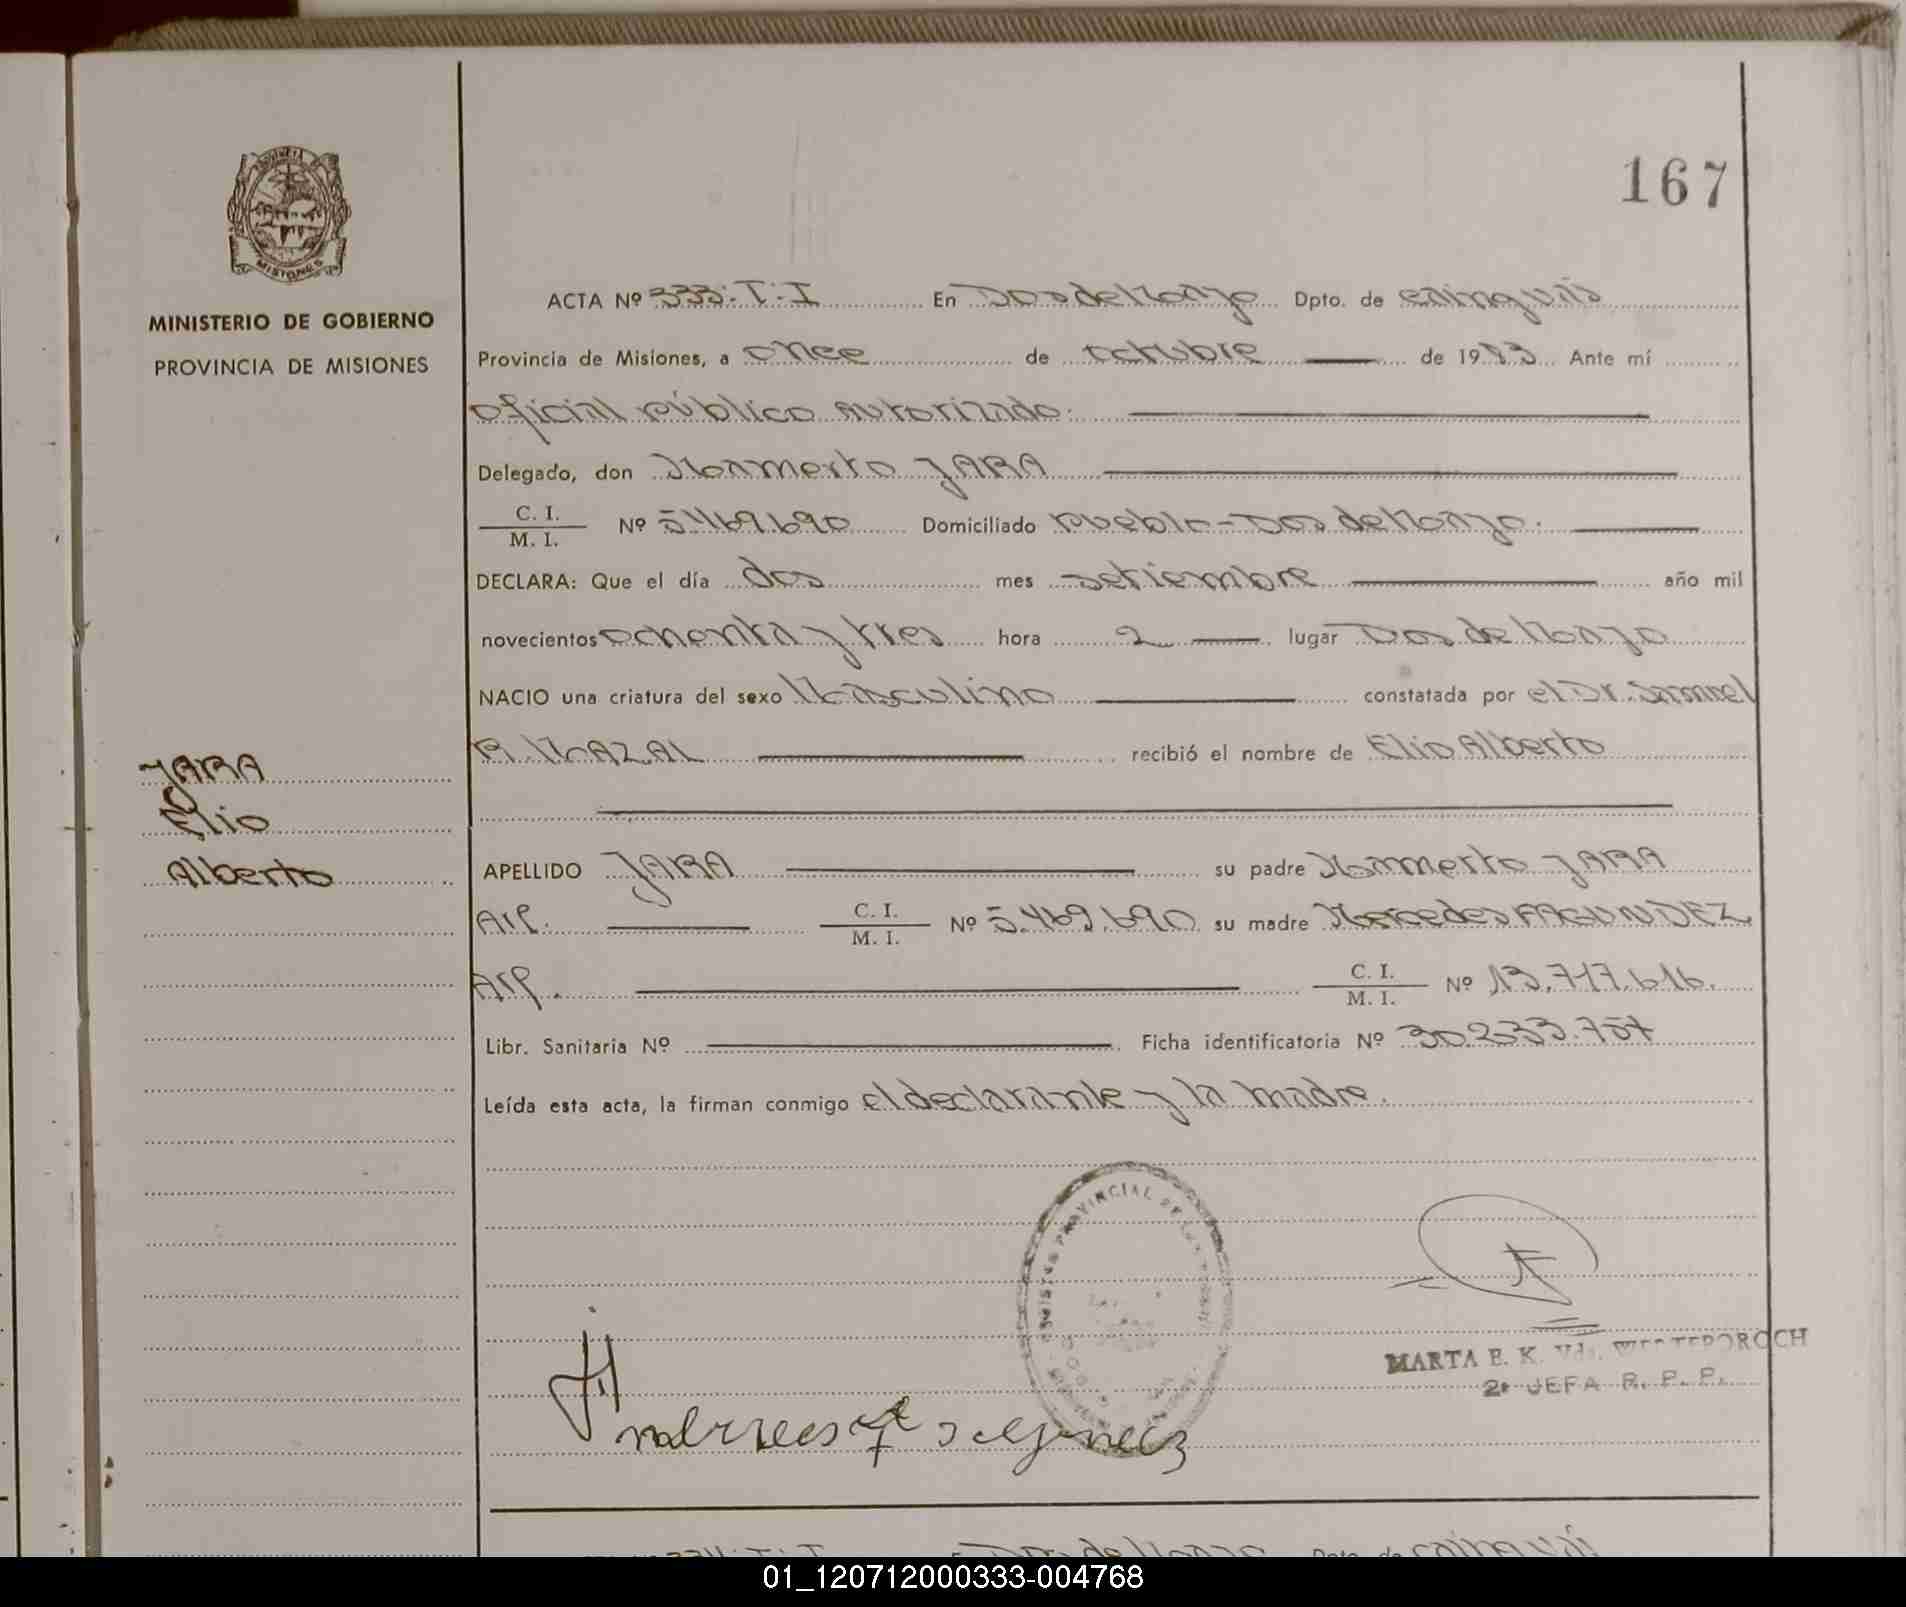 167
MISIONES
MINISTERIO DE GOBIERNO
PROVINCIA DE MISIONES
JARA
Elio
Alberto
ACTA Nº 333-T-I En Dos de Mayo Dpto. de Cainguás
Provincia de Misiones, a once de octubre de 1983 Ante mí
oficial público autorizado.
Delegado, don JARA
C. I.
M. I. Nº 5469.690 Domiciliado pueblo-Dos de Mayo.
DECLARA: Que el día dos mes setiembre año mil
novecientos ochenta y tres hora 2 lugar Dos de Mayo
NACIO una criatura del sexo Masculino constatada por el Dr. Samuel
recibió el nombre de Elio Alberto
APELLIDO JARA su padre JARA
Arg. C. I.
M. I. Nº 5.469.690 su madre Mercedes FAGUNDEZ
Arg. C. I.
M. I. Nº 13.717.616.
Libr. Sanitaria Nº Ficha identificatoria Nº 30.233.757
Leída esta acta, la firman conmigo el declarante y la madre.
PROVINCIAL DE LAS
MARTA E. K. Vda.
2º JEFA R. P. P.
En Dos de Mayo Dpto. de Cainguás
01_120712000333-004768